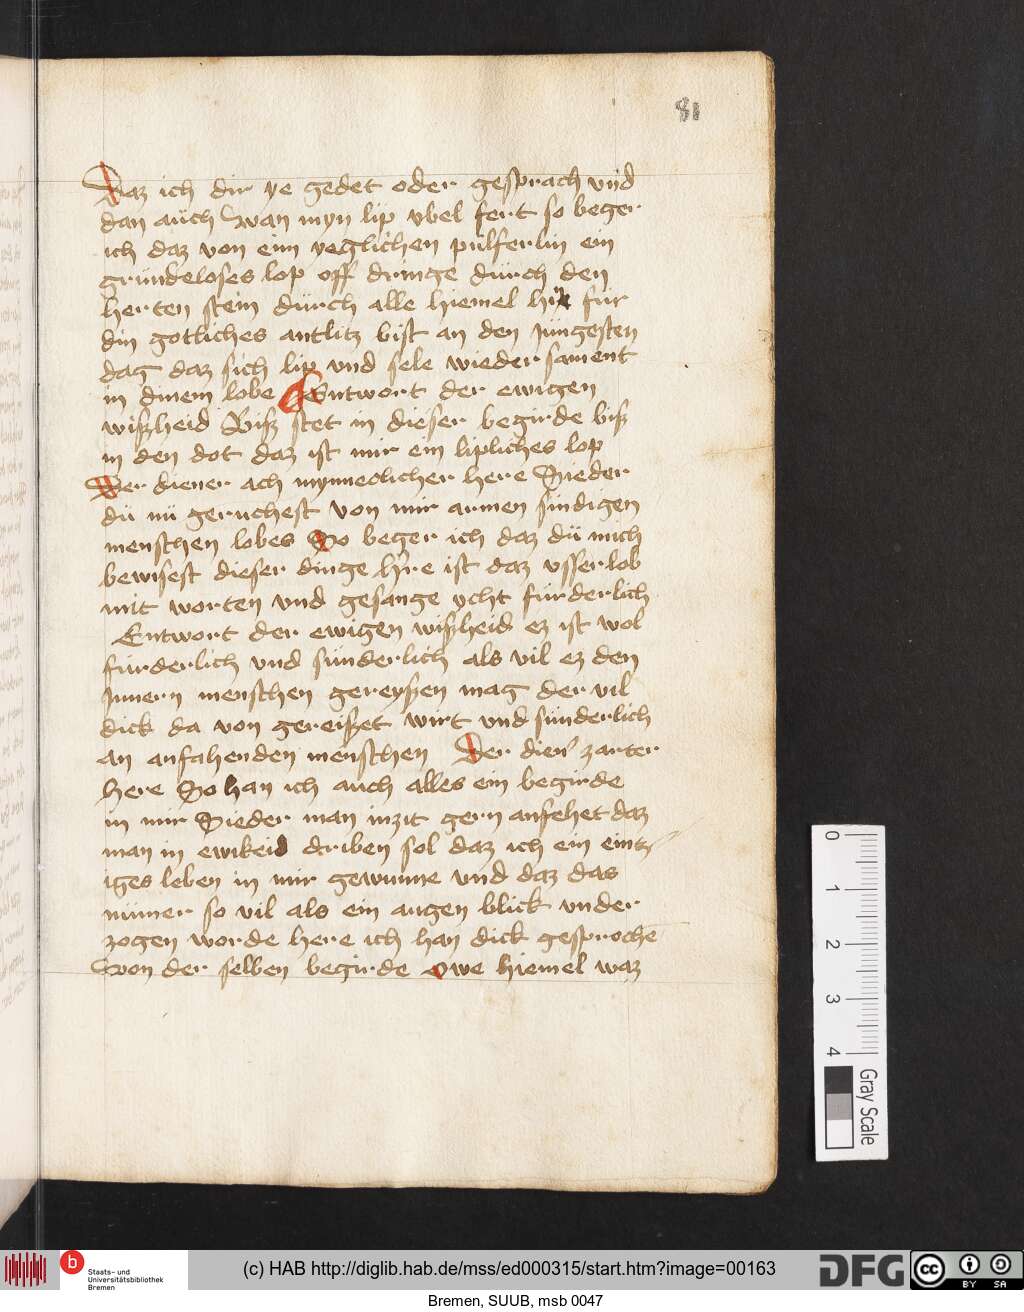 81
Daz ich dir ye gedet oder gesprach vnd
dan auch Swan myn lip vbel fert so beger
ich daz von eim yeglichen pulferlin ein
grundeloses lop off dringe durch den
herten stein durch alle hiemel hin fur
din gotliches antlitz bist an den jungesten
dag daz sich lip vnd sele wieder sament
in dinem lobe Entwort der ewigen
wißheid Biß stet in dieser begirde biß
in den dot daz ist mir ein lipliches lop
Der diener ach mynneclicher here Sieder
du nu geruchest von mir armen sundigen
menschen lobes So beger ich daz du mich
bewisest dieser dinge h're ist daz vsserlob
mit worten vnd gesange ycht furderlich
Entwort der ewigen wißheid ez ist wol
furderlich vnd sunderlich als vil ez den
Innern menschen gereyßen mag der vil
dick da von gereißet wirt vnd sunderlich
an anfahenden menschen Der dien' zarter
here So han ich auch alles ein begirde
in mir Sieder man inzit gern anfehet daz
man in ewikeid driben sol daz ich ein eintz
iges leben in mir gewunne vnd daz das
numer so vil als ein augen blick vnder
zogen worde here ich han dick gesproche
Von der selben begirde owe hiemel waz
0 1 2 3 4
Gray Scale
b
Staats- und
Universitätsbibliothek
Bremen
(c) HAB http://diglib.hab.de/mss/ed000315/start.htm?image=00163
DFG
cc
BY SA
Bremen, SUUB, msb 0047